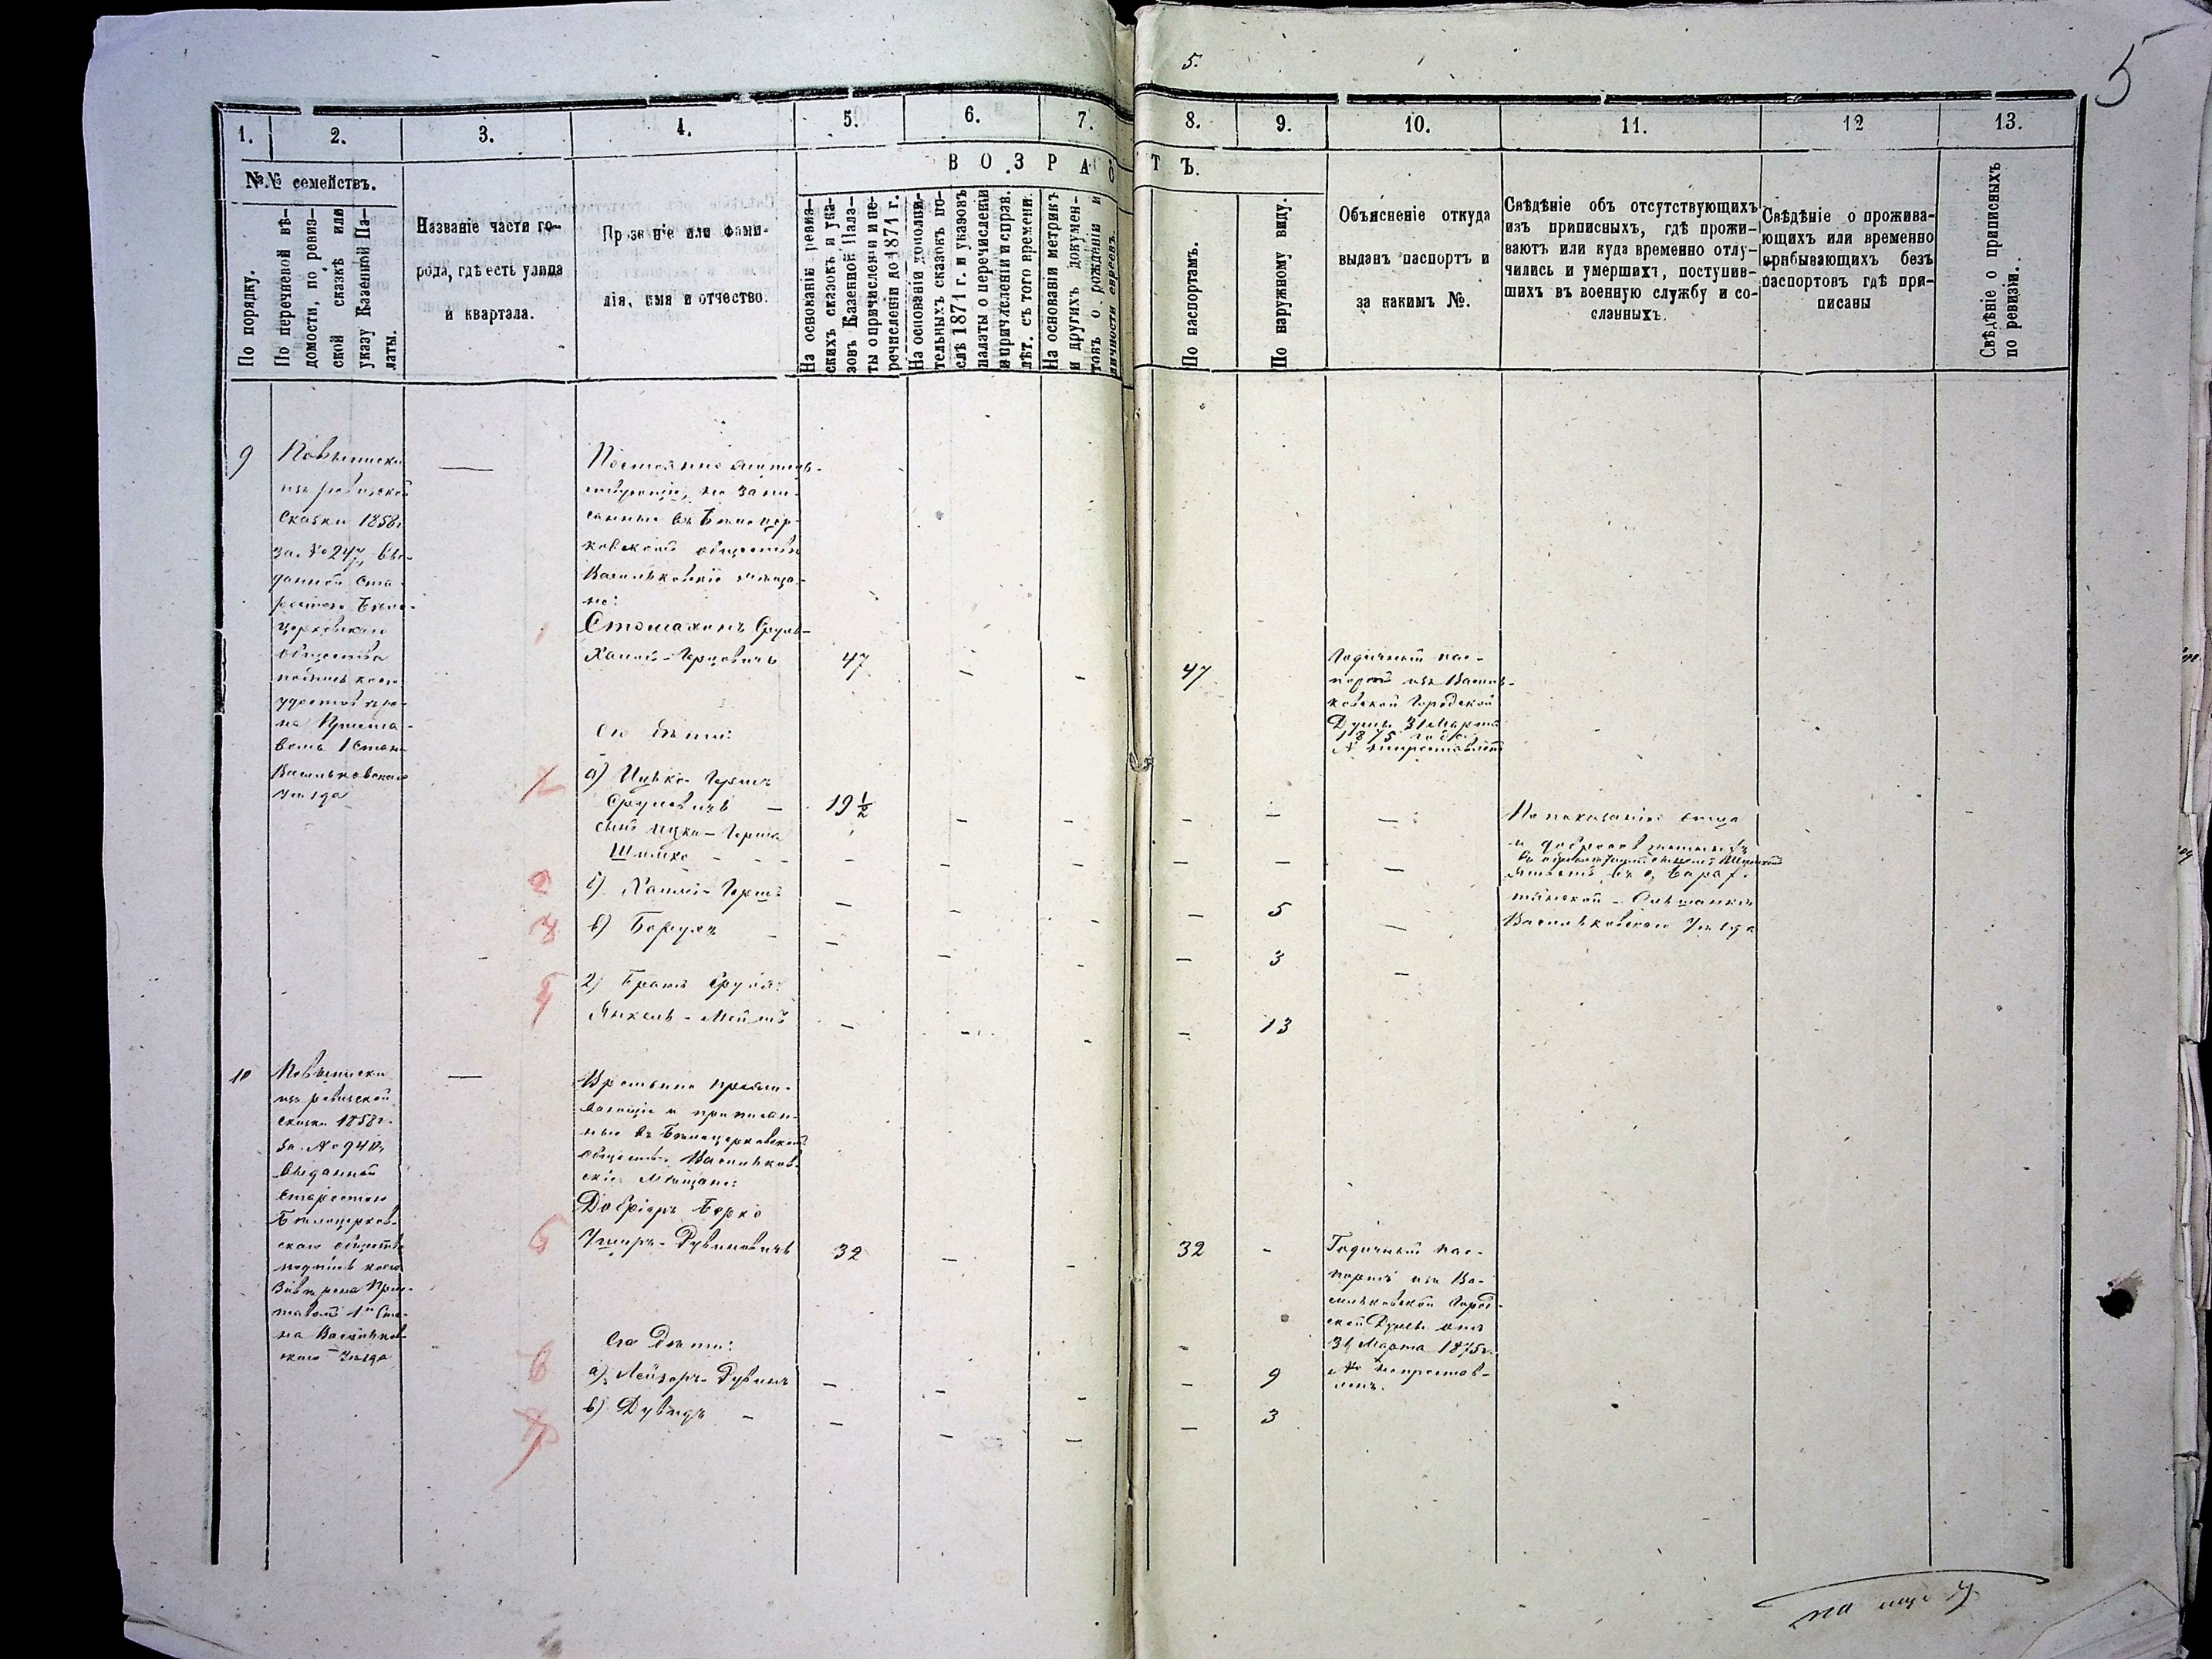 5.
5
1. 2. 3. 4. 5. 6. 7. 8. 9. 10. 11. 12 13.
№.№ семействъ.
В О З Р А С Т Ъ.
По порядку.
По перечневой вѣ-
домости, по ревиз-
ской сказкѣ или
указу Казенной Па-
латы.
Названіе части го-
рода, гдѣ есть улица
и квартала.
Прозвніе или фами-
лія, имя и отчество.
На основаніи ревиз-
скихъ сказокъ и ука-
зовъ Казенной Пала-
ты о причисленіи и пе-
речисленіи до 1871 г.
На основаніи дополни-
тельныхъ сказокъ по-
слѣ 1871 г. и указовъ
палаты о перечисленіи
и причисленіи и справ.
лѣт. съ того времени.
На основаніи метрикъ
и другихъ докумен-
товъ о рожденіи и
личности евреевъ.
По паспортамъ.
По наружному виду.
Объясненіе откуда
выданъ паспортъ и
за какимъ №.
Свѣдѣніе объ отсутствующихъ
изъ приписныхъ, гдѣ прожи-
ваютъ или куда временно отлу-
чились и умершихъ, поступив-
шихъ въ военную службу и со-
сланныхъ.
Свѣдѣніе о прожива-
ющихъ или временно
прибывающихъ безъ
паспортовъ гдѣ при-
писаны
Свѣдѣніе о приписныхъ
по ревизіи.
9
По выписки
изъ ревизской
сказки 1858 г
за № 247, вы-
данной Ста-
ростою Бѣло-
церковскаго
общества
подпись коего
удостовѣре-
на Приста-
вомъ 1 Стана
Васильковскаго
Уѣзда
Постоянно житель-
ствующіе, но запи-
санные въ Бѣлоцер-
ковскомъ обществѣ
Васильковскіе мѣща-
не:
Сруль-
Хаимъ-Герцовичъ 47 - - 47
Годичный пас-
портъ изъ Василь-
ковской Городской
Думы 31 Марта
1875 года
Его дѣти:
1 а) Ицко-Гершъ
Срулевичъ - 19½ - - - - -
сынъ Ицка-Герша
Шимко - - - - - - - -
2 б) Хаимъ-Гершъ - - - - 5 -
3 в) Борухъ - - - - - 3 -
4 2) Братъ Сруля:
Янкель-Мейлахъ - - - - 13
По показанію отца
Ольшанки
Васильковскаго Уѣзда
10
По выписки
изъ ревизской
сказки 1858 г.
за № 940,
выданной
Старостою
Бѣлоцерков-
скаго общества
подпись коего
завѣрена При-
ставомъ 1го Ста-
на Васильков-
скаго Уѣзда
Временно прожи-
вающіе и приписан-
ные въ Бѣлоцерковскомъ
обществѣ Васильков-
скіе Мѣщане:
Берко
5 Ушеръ-Дувиновичъ 32 - - 32 -
Годичный пас-
портъ изъ Ва-
сильковской Город-
ской Думы отъ
31 Марта 1875 г.
№ непростав-
ленъ.
Его Дѣти:
6 а) Лейзоръ-Дувинъ - - - - 9
7 в) Дувидъ - - - - - 3